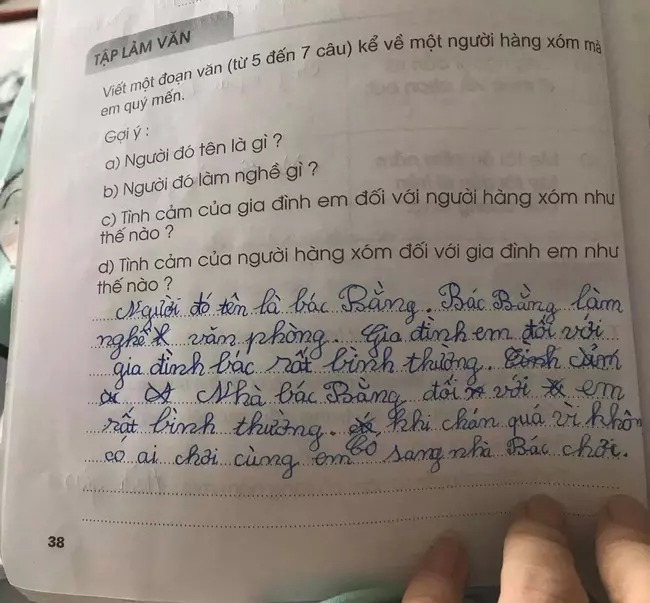 TẬP LÀM VĂN
Viết một đoạn văn (từ 5 đến 7 câu) kể về một người hàng xóm mà
em quý mến.
Gợi ý :
a) Người đó tên là gì ?
b) Người đó làm nghề gì ?
c) Tình cảm của gia đình em đối với người hàng xóm như
thế nào ?
d) Tình cảm của người hàng xóm đối với gia đình em như
thế nào ?
Người đó tên là bác Bằng. Bác Bằng làm
nghề văn phòng. Gia đình em đối với
gia đình bác rất bình thường. tình cảm
Nhà bác Bằng đối với em
rất bình thường. khi chán quá vì khôn
có ai chơi cùng em bỏ sang nhà Bác chơi.
38